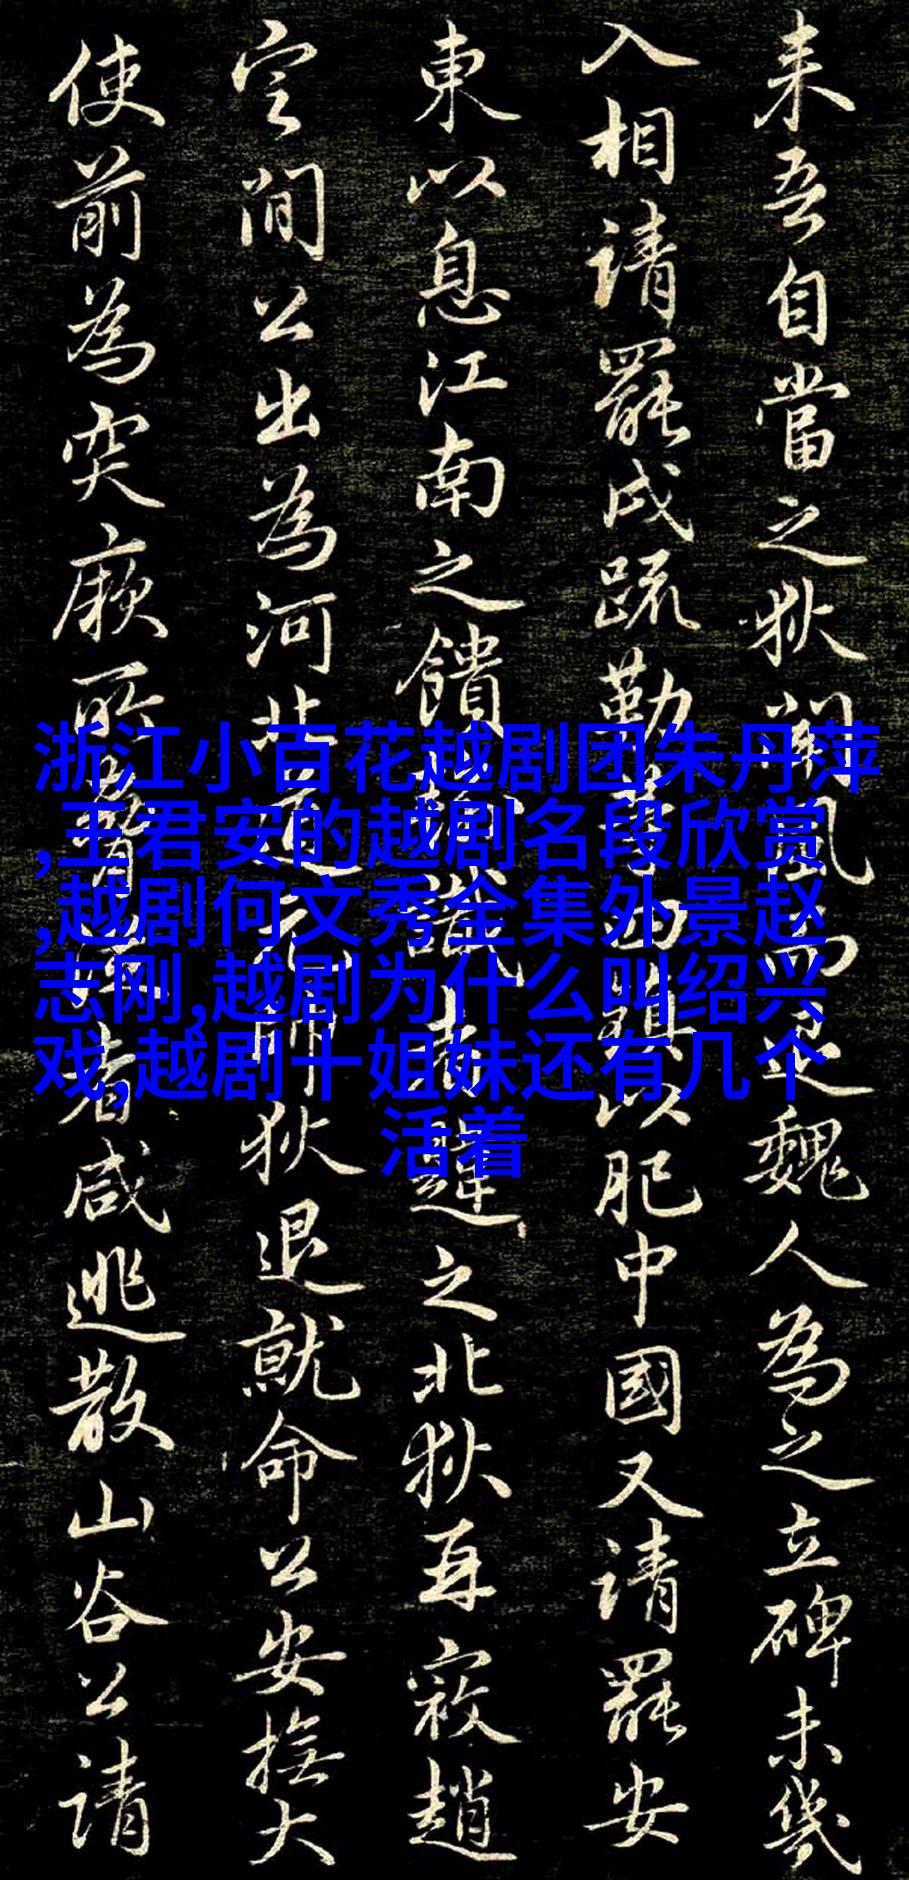 来吾自當之狄聞風而退魏人為之立碑未幾
入相請罷戍疏勒等四鎮以肥中國又請罷安
東以息江南之饋輸識者韙之北狄再寇趙
定間公出為河北道元帥狄退就命公安撫大
使前為突厥所脅從者咸逃散山谷公請
浙江小百花越剧团朱丹萍
,王君安的越剧名段欣赏
,越剧何文秀全集外景赵
志刚,越剧为什么叫绍兴
戏,越剧十姐妹还有几个
活着